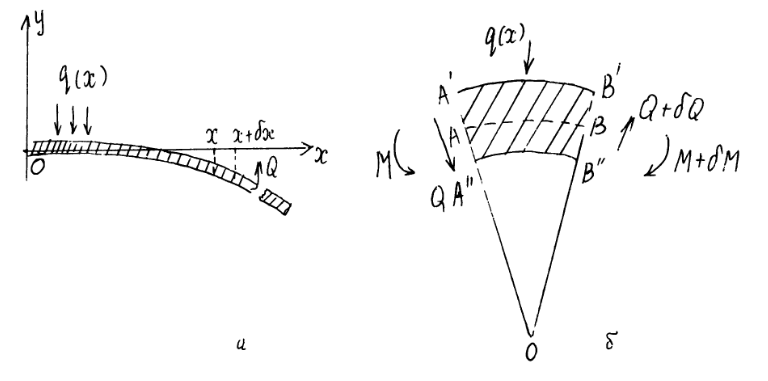 y
q(x)
x
x+δx
x
O
Q
а
q(x)
A'
B'
A
B
Q+δQ
M
B"
M+δM
Q
A"
O
б